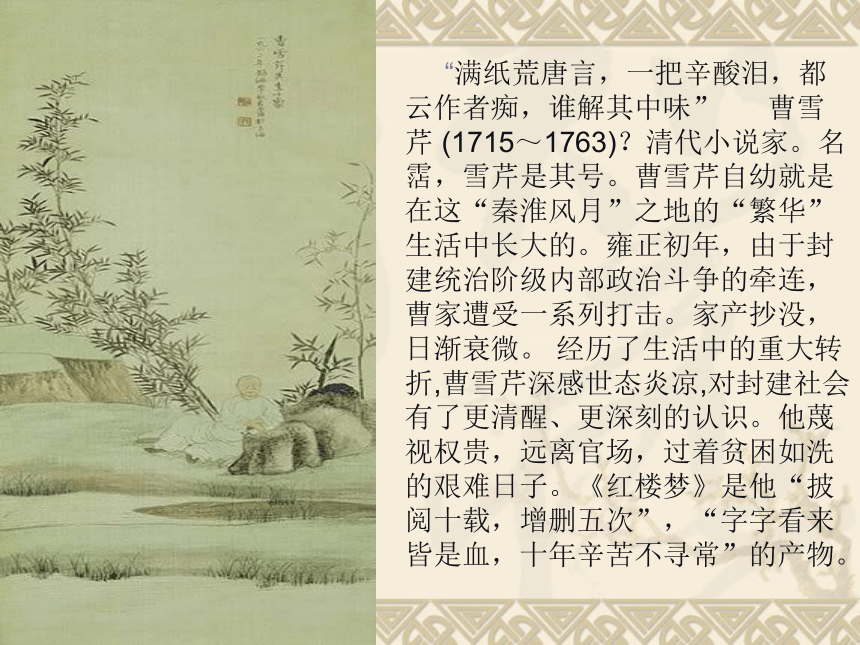 “满纸荒唐言，一把辛酸泪，都
云作者痴，谁解其中味” 曹雪
芹 (1715～1763)？清代小说家。名
霑，雪芹是其号。曹雪芹自幼就是
在这“秦淮风月”之地的“繁华”
生活中长大的。雍正初年，由于封
建统治阶级内部政治斗争的牵连，
曹家遭受一系列打击。家产抄没，
日渐衰微。 经历了生活中的重大转
折,曹雪芹深感世态炎凉,对封建社会
有了更清醒、更深刻的认识。他蔑
视权贵，远离官场，过着贫困如洗
的艰难日子。《红楼梦》是他“披
阅十载，增删五次”，“字字看来
皆是血，十年辛苦不寻常”的产物。